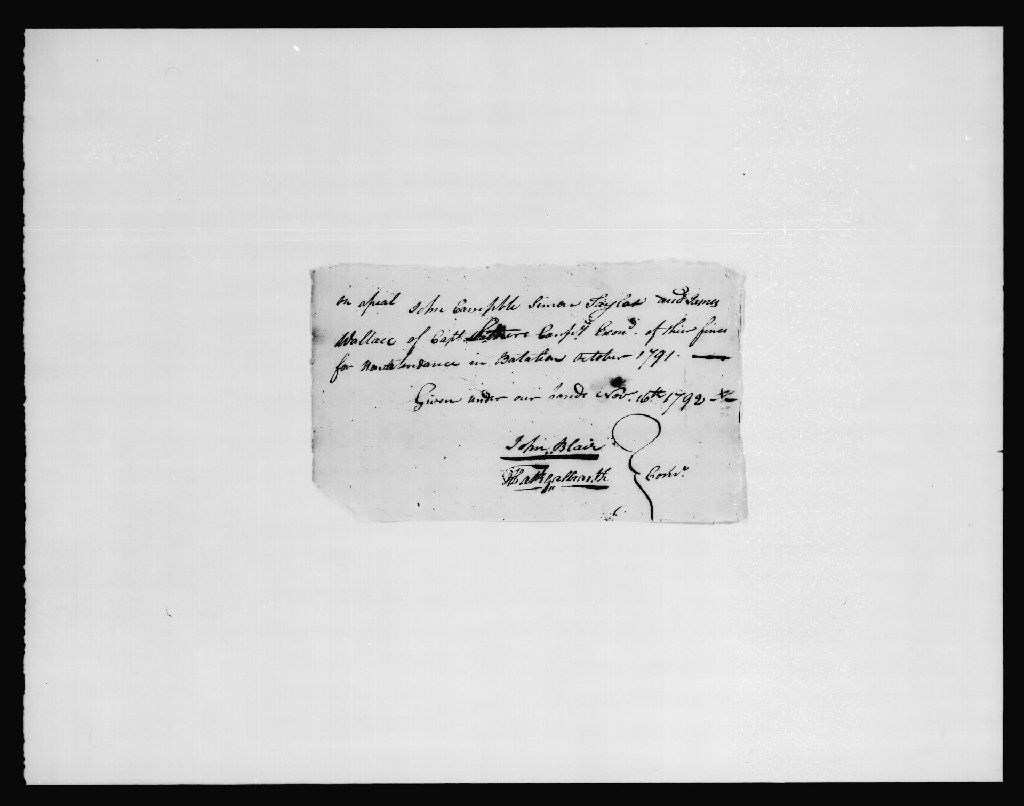 on apeal John Campble Simon Taylor and James
Wallace of Capt. Comp.y Exond. of thier fines
for Nonattendance in Batalion October 1791.
Given under our hands Nov. 16th 1792
John Blair
Comr.